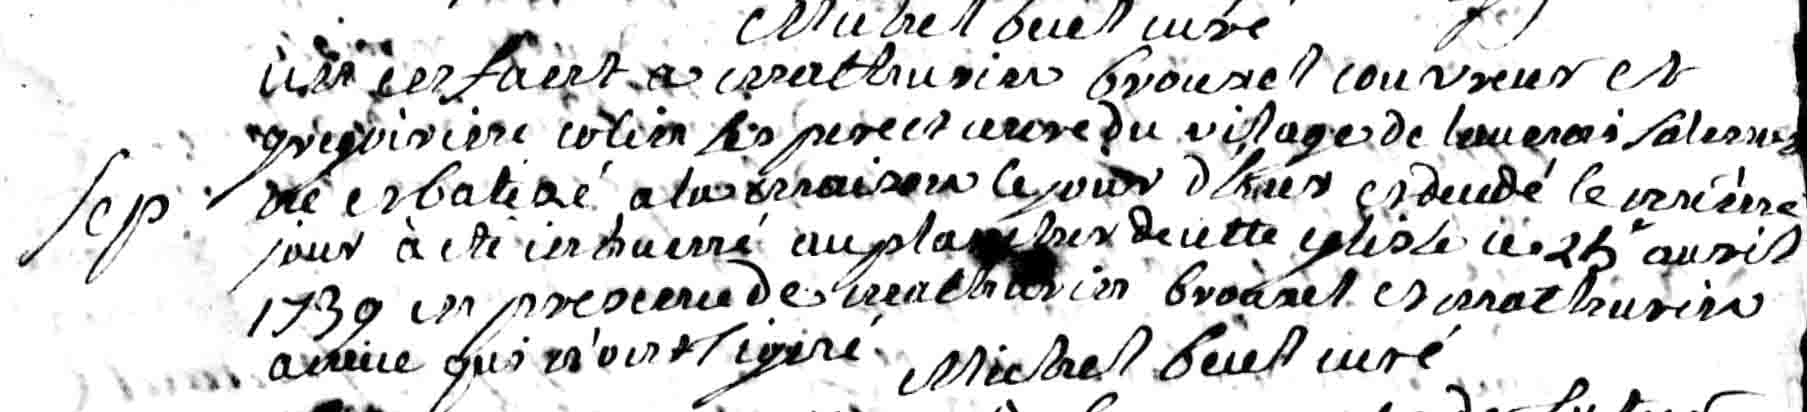 Michel buet curé
un enfant a mathurin brouxel couvreur et
gregoirinne colin ses pere et mere du village de
sep. né et batizé a la maison le jour d'hier et decedé le meme
jour à eté inhumé au plancher de cette eglise ce 25e avril
1739 en presence de mathurin brouxel et mathurin
qui n'ont signé. Michel buet curé